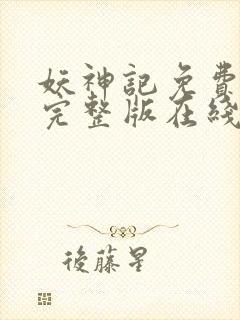 妖神記免費
完整版在綫
後藤星